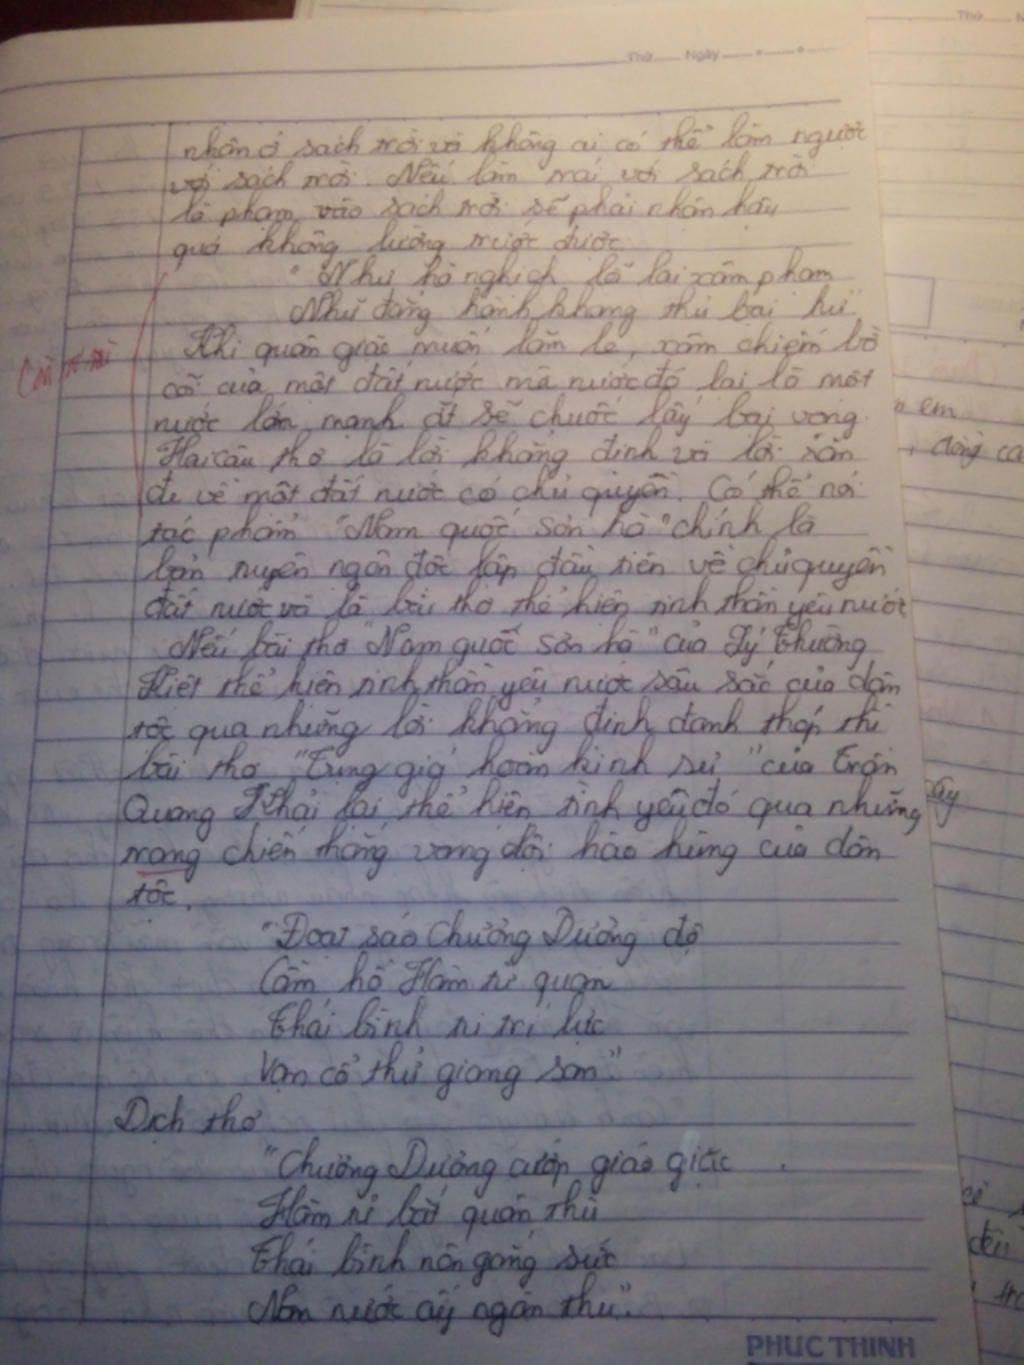 Thứ Ngày
nhận ở sách trời và không ai có thể làm ngược
với sách trời. Nếu làm trái với sách trời
là phạm vào sách trời sẽ phải nhận hậu
quả không lường trước được
"Như hà nghịch lỗ lai xâm phạm
Nhữ đẳng hành khang thủ bại hư"
Khi quân giặc muốn lăm le, xâm chiếm bờ
cõi của một đất nước mà nước đó lại là một
nước lớn mạnh ắt sẽ chuốc lấy bại vong.
Hai câu thơ là lời khẳng định và lời răn
đe về một đất nước có chủ quyền. Có thể nói
tác phẩm "Nam quốc sơn hà" chính là
bản tuyên ngôn độc lập đầu tiên về chủ quyền
đất nước và là bài thơ thể hiện tinh thần yêu nước
Nếu bài thơ "Nam quốc sơn hà" của Lý Thường
Kiệt thể hiện tinh thần yêu nước sâu sắc của dân
tộc qua những lời khẳng định đanh thép thì
bài thơ "Tụng giá hoàn kinh sư" của Trần
Quang Khải lại thể hiện tình yêu đó qua những
trang chiến thắng vang dội hào hùng của dân
tộc.
"Đoạt sáo Chương Dương độ
Cầm hồ Hàm tử quan
Thái bình tu trí lực
Vạn cổ thử giang san"
Dịch thơ
"Chương Dương cướp giáo giặc
Hàm tử bắt quân thù
Thái bình nên gắng sức
Non nước ấy ngàn thu".
PHUC THINH
em
dòng ca
ấy